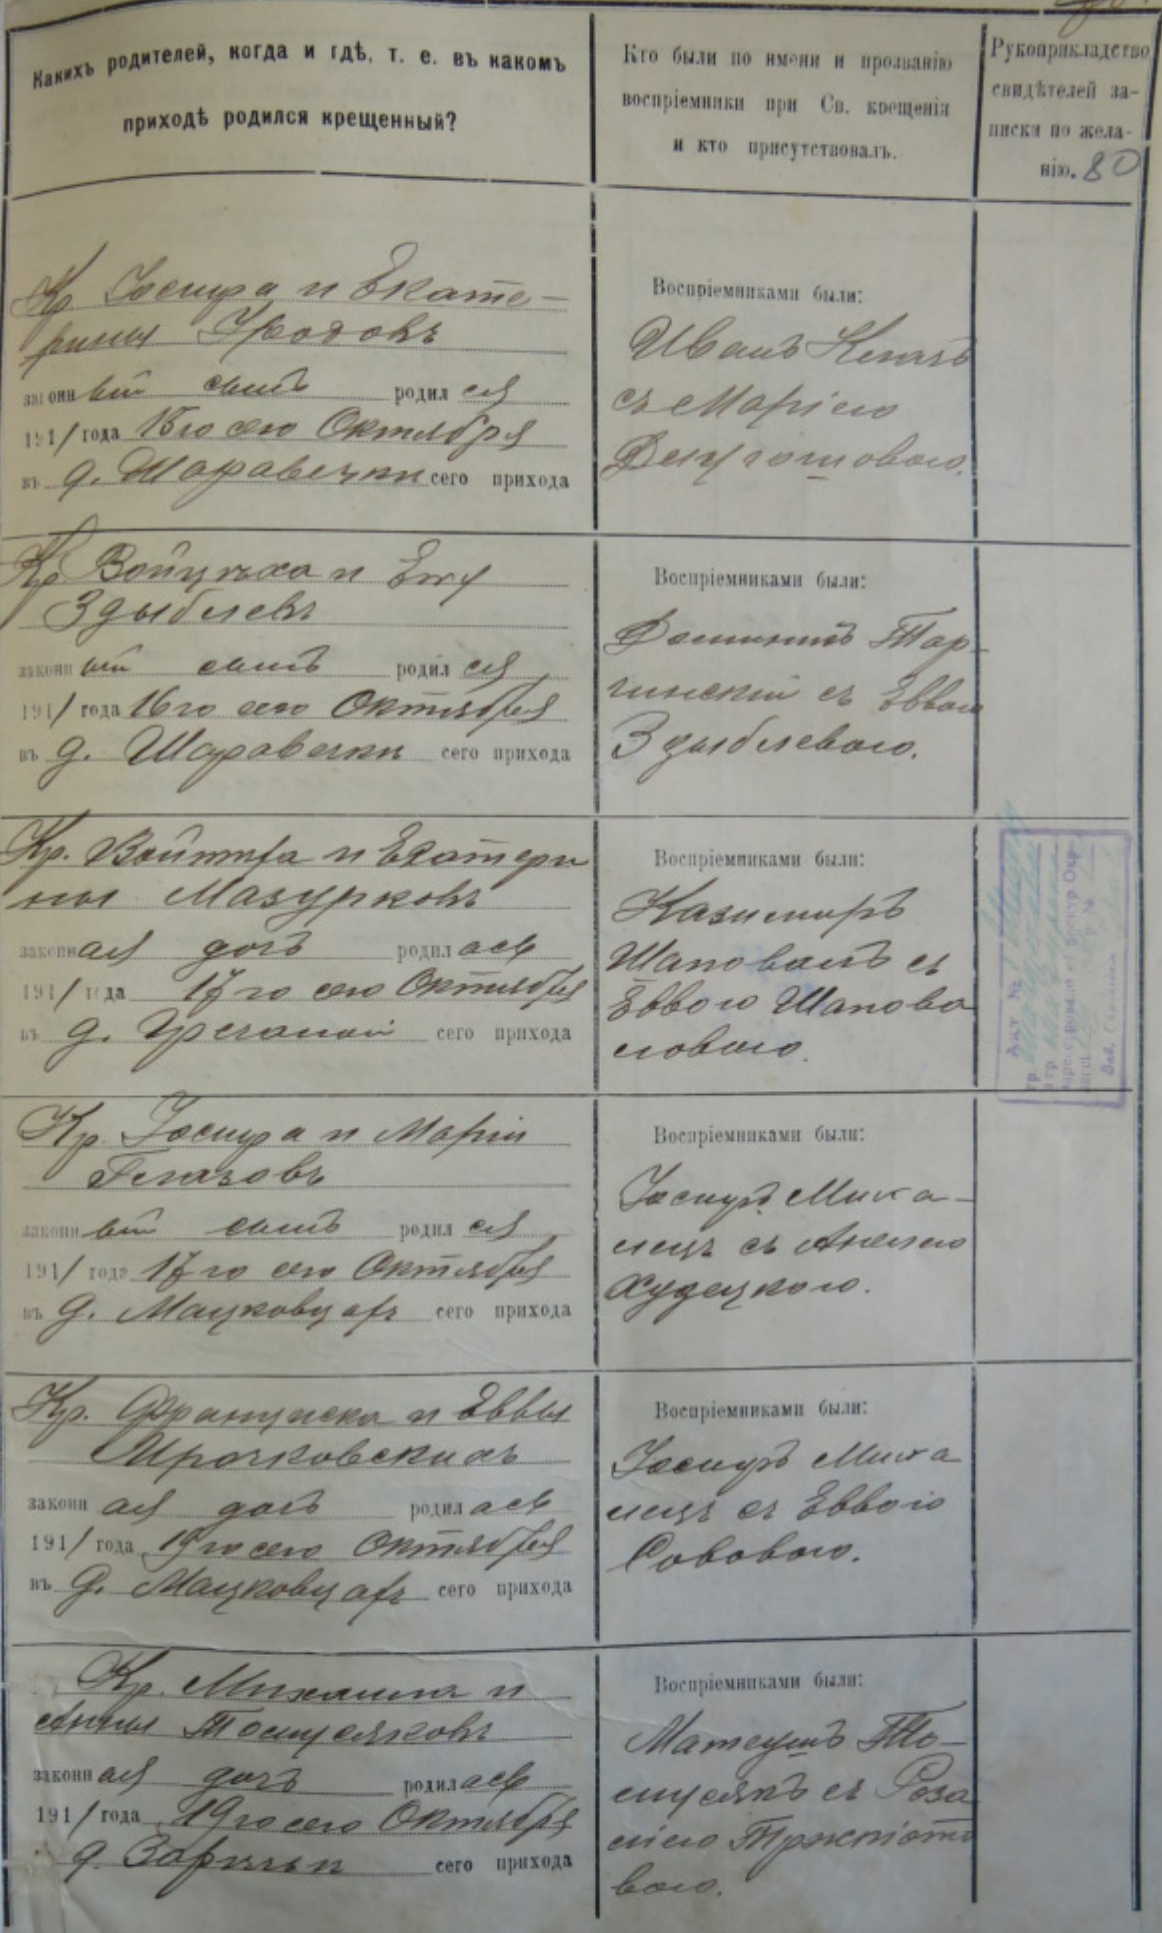 Какихъ родителей, когда и гдѣ, т. е. въ какомъ
приходѣ родился крещенный?
Кто были по имени и прозванію
воспріемники при Св. крещеніи
и кто присутствовалъ.
Рукоприкладство
свидѣтелей за-
писки по жела-
нію. 80
Кр. Іосифа и Екате-
рины
законный сынъ родился
1911 года 15го сего Октября
въ д. Шаравечки сего прихода
Воспріемниками были:
Иванъ
съ Маріею
Кр. Войцѣха и Евы
Здыблевъ
законный сынъ родился
1911 года 16го сего Октября
въ д. Шаравечки сего прихода
Воспріемниками были:
Доминикъ Тар-
гинскій съ Еввою
Здыблевою.
Кр. Войтѣха и Екатери
ны Мазурковъ
законная дочь родилась
1911 года 17го сего Октября
въ д. Гречаной сего прихода
Воспріемниками были:
Казимиръ
Шаповалъ съ
Еввою Шапова
ловою.
Актъ №
гр.
Кр. Іосифа и Маріи
законный сынъ родился
1911 года 17го сего Октября
въ д. Мацковцахъ сего прихода
Воспріемниками были:
Іосифъ Миха-
лецъ съ Анелею
Худецкою.
Кр. Франциска и Еввы
Мрочковскихъ
законная дочь родилась
1911 года 19го сего Октября
въ д. Мацковцахъ сего прихода
Воспріемниками были:
Іосифъ Миха
лецъ съ Еввою
Сововою.
Кр. Михаила и
Анны
законная дочь родилась
1911 года 19го сего Октября
д. Заричьи сего прихода
Воспріемниками были:
Матеушъ
съ Роза
ліею
вою.